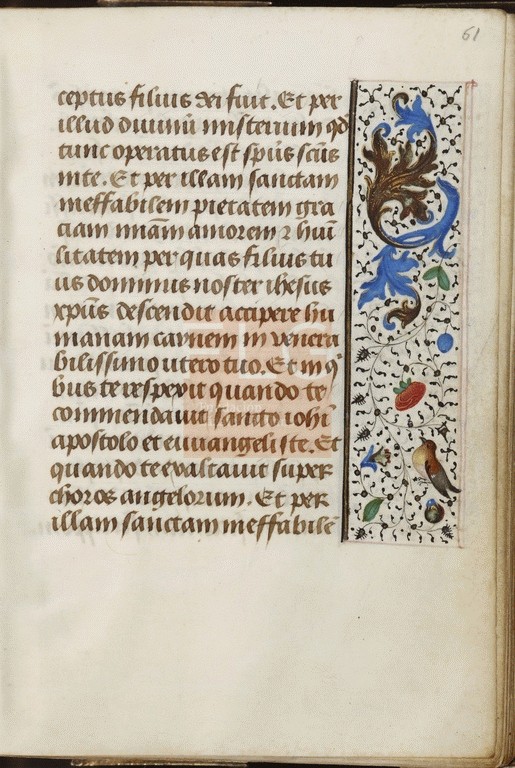 61
ceptus filius dei fuit. Et per
illud diuinū misterium qd
tunc operatus est spūs scūs
in te. Et per illam sanctam
ineffabilem pietatem gra
ciam miām amorem ⁊ huī
litatem per quas filius tu
us dominus noster ihesus
xpūs descendit accipere hu
manam carnem in venera
bilissimo utero tuo. Et in qͥ
bus te respexit quando te
commendauit sancto iohī
apostolo et euuangeliste. Et
quando te exaltauit super
choros angelorum. Et per
illam sanctam ineffabilē